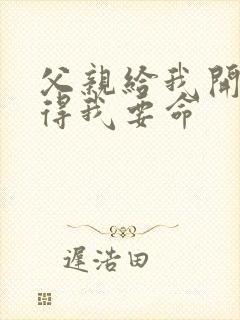 父親給我開
得我要命
遲浩田